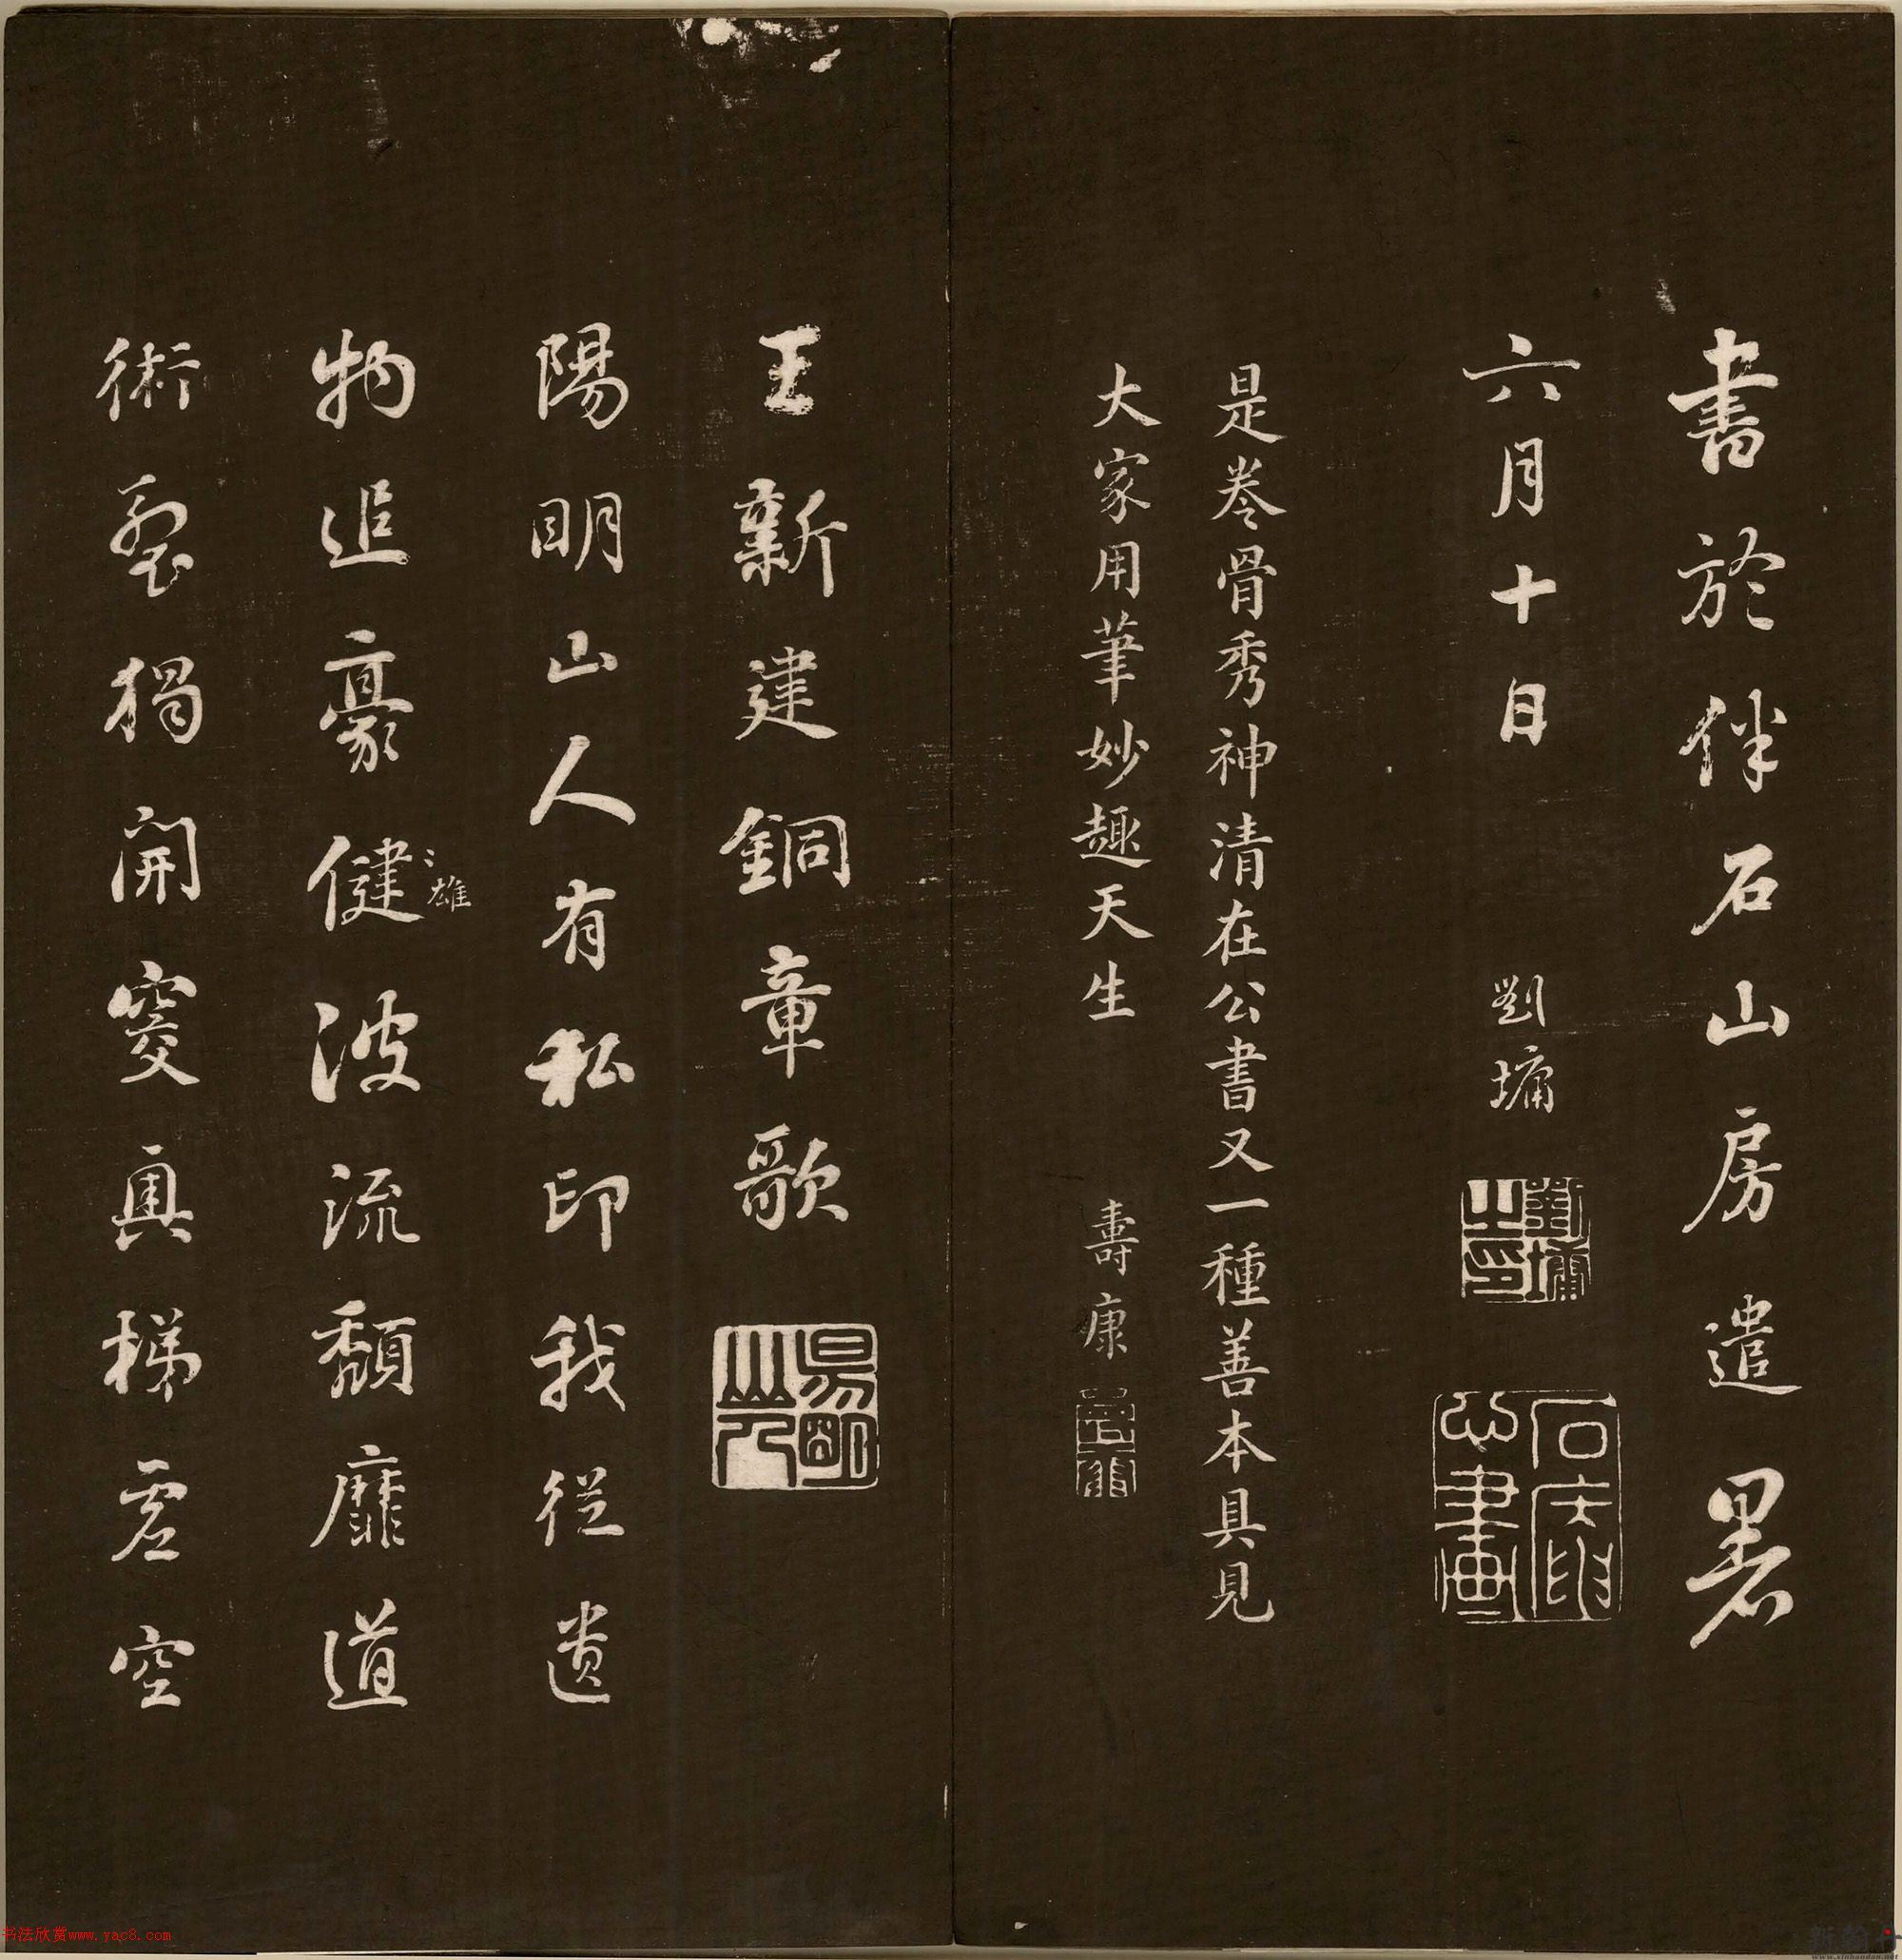 書於伴石山房遣暑
六月十日 劉墉
劉墉之印
是卷骨秀神清在公書又一種善本具見
大家用筆妙趣天生 壽康
王新建銅章歌
陽明山人
陽明山人有私印我從遺
物追豪健雄波流頹靡道
術裂獨開窔奧梯虛空
书法欣赏www.yac8.com